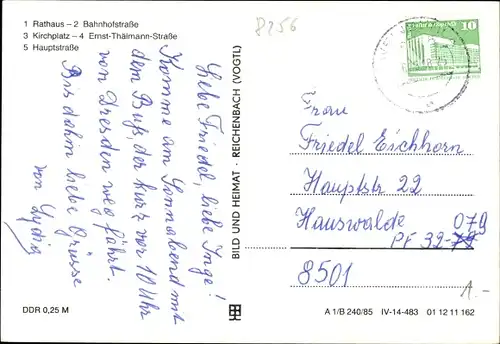 1 Rathaus – 2 Bahnhofstraße
3 Kirchplatz – 4 Ernst-Thälmann-Straße
5 Hauptstraße
8256
10
Liebe Friedel, liebe Inge!
Komme am Sonnabend mit
dem Buß, der kurz vor 10 Uhr
von Dresden weg fährt.
Bis dahin liebe Grüsse
von Lydia
BILD UND HEIMAT · REICHENBACH (VOGTL)
Frau
Friedel Eichhorn
Hauptstr 22
Hauswalde 079
PF 32-79
8501
A.-
DDR 0,25 M
A 1/B 240/85 IV-14-483 01 12 11 162